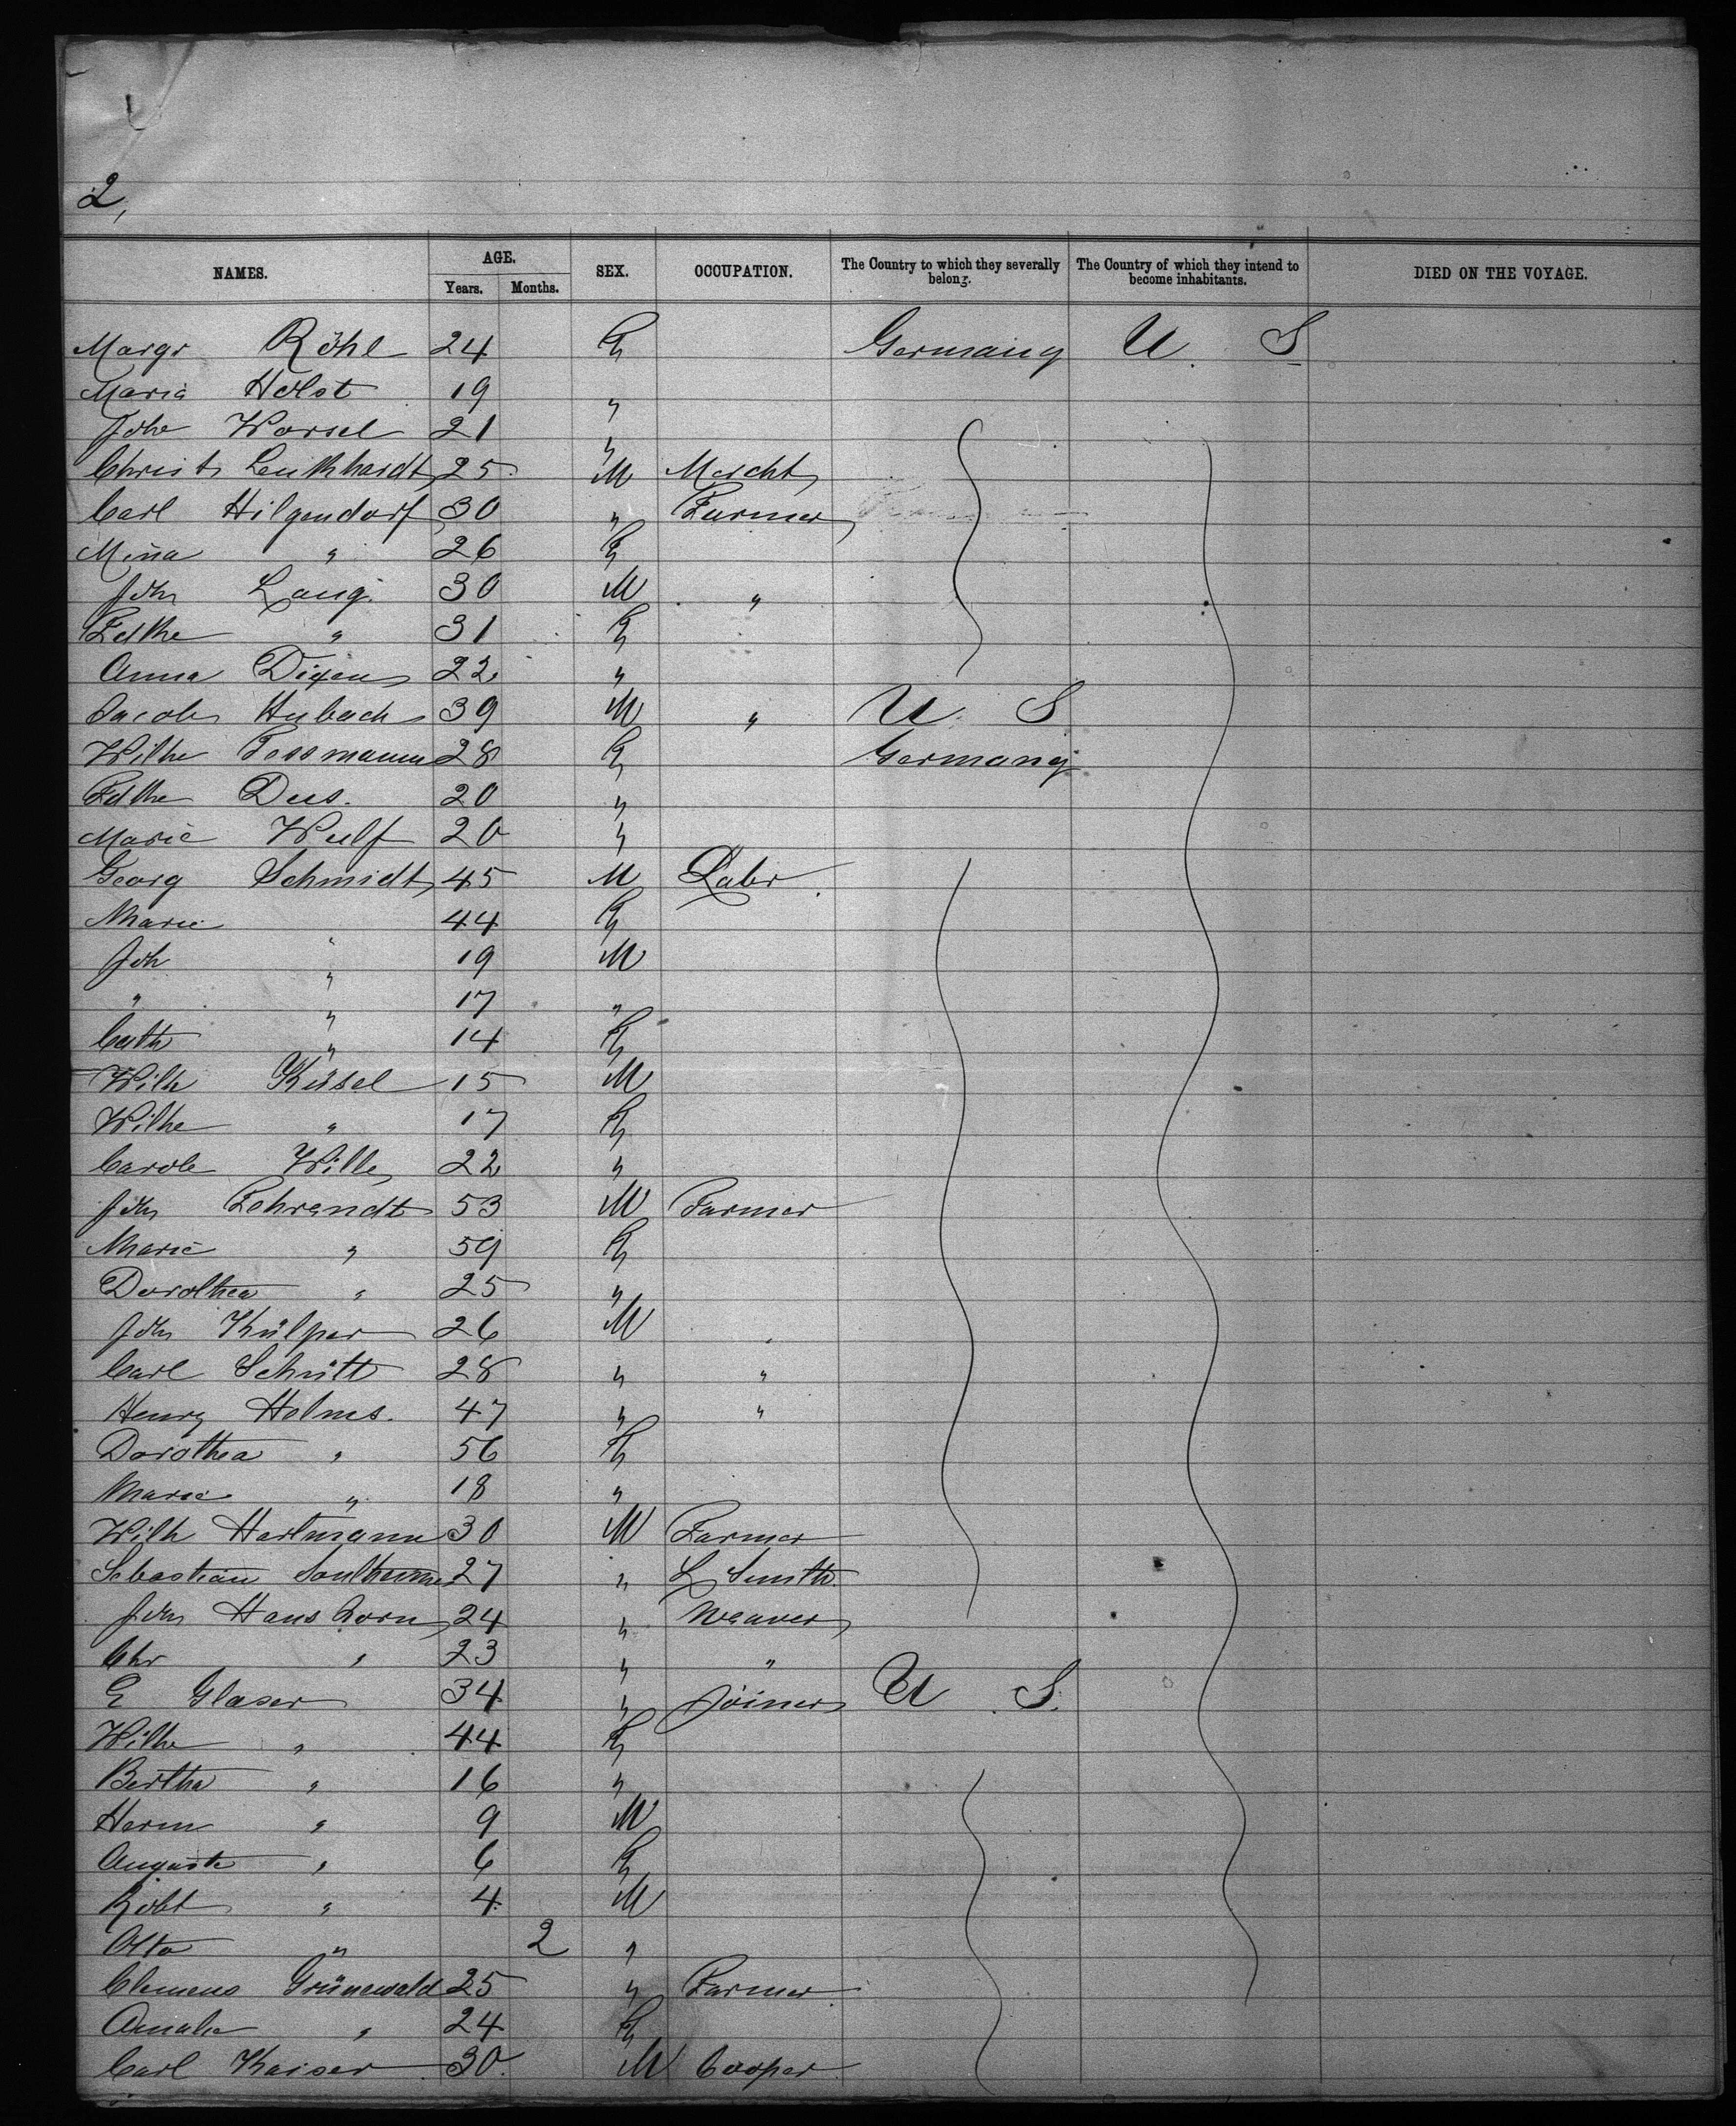 2,
NAMES. AGE. SEX. OCCUPATION. The Country to which they severally belong. The Country of which they intend to become inhabitants. DIED ON THE VOYAGE.
Years. Months.
Margr Röhl 24 F Germany U. S
Maria Holst 19 "
Johe Worsel 21 "
Christ Leukhardt 25 M Mercht
Carl Hilgendorf 30 " Farmer
Mina " 26 F
Joh Lang. 30 M "
Edthe " 31 F
Anna 22 "
Jacob Hubach 39 M " U. S
Wilhe Tessmann 28 F Germany
Edthe Dus. 20 "
Marie Wulf 20 "
Georg Schmidt 45 M Labr
Marie " 44 F
Joh " 19 M
" " 17 "
Cath " 14 F
Wilh Küsel 15 M
Wilhe " 17 F
Carole Wille 22 "
Joh Fehrandt 53 M Farmer
Marie " 59 F
Dorothea " 25 "
Joh Külper 26 M "
Carl Schütt 28 " "
Henry Holms. 47 " "
Dorothea " 56 F
Marie " 18 "
Wilh Hartmann 30 M Farmer
Sebastian 27 " L Smith
Joh Hanshorn 24 " Weaver
Chr " 23 " "
E Glaser 34 " Joiner U S.
Wilhe " 44 F
Bertha " 16 "
Herm " 9 M
Auguste " 6 F
Robt " 4 M
Otto " 2 "
Clemens Grünewald 25 " Farmer
Amalie " 24 F
Carl Kaiser 30. M Cooper